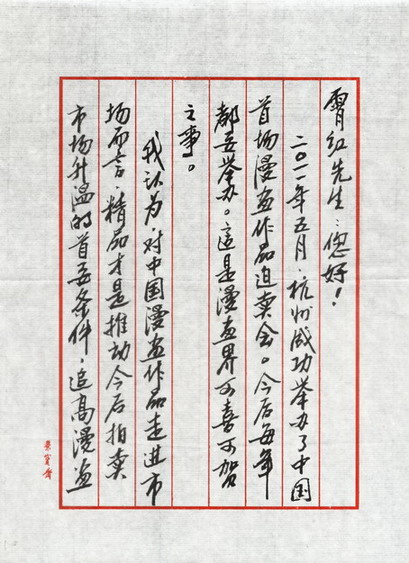 霄红先生：您好！
二〇一一年五月，杭州成功举办了中国
首场漫画作品追卖会。今后每年
都要举办。这是漫画界可喜可贺
之事。
我认为，对中国漫画作品走进市
场而言，精品才是推动今后拍卖
市场升温的首要条件，追高漫画